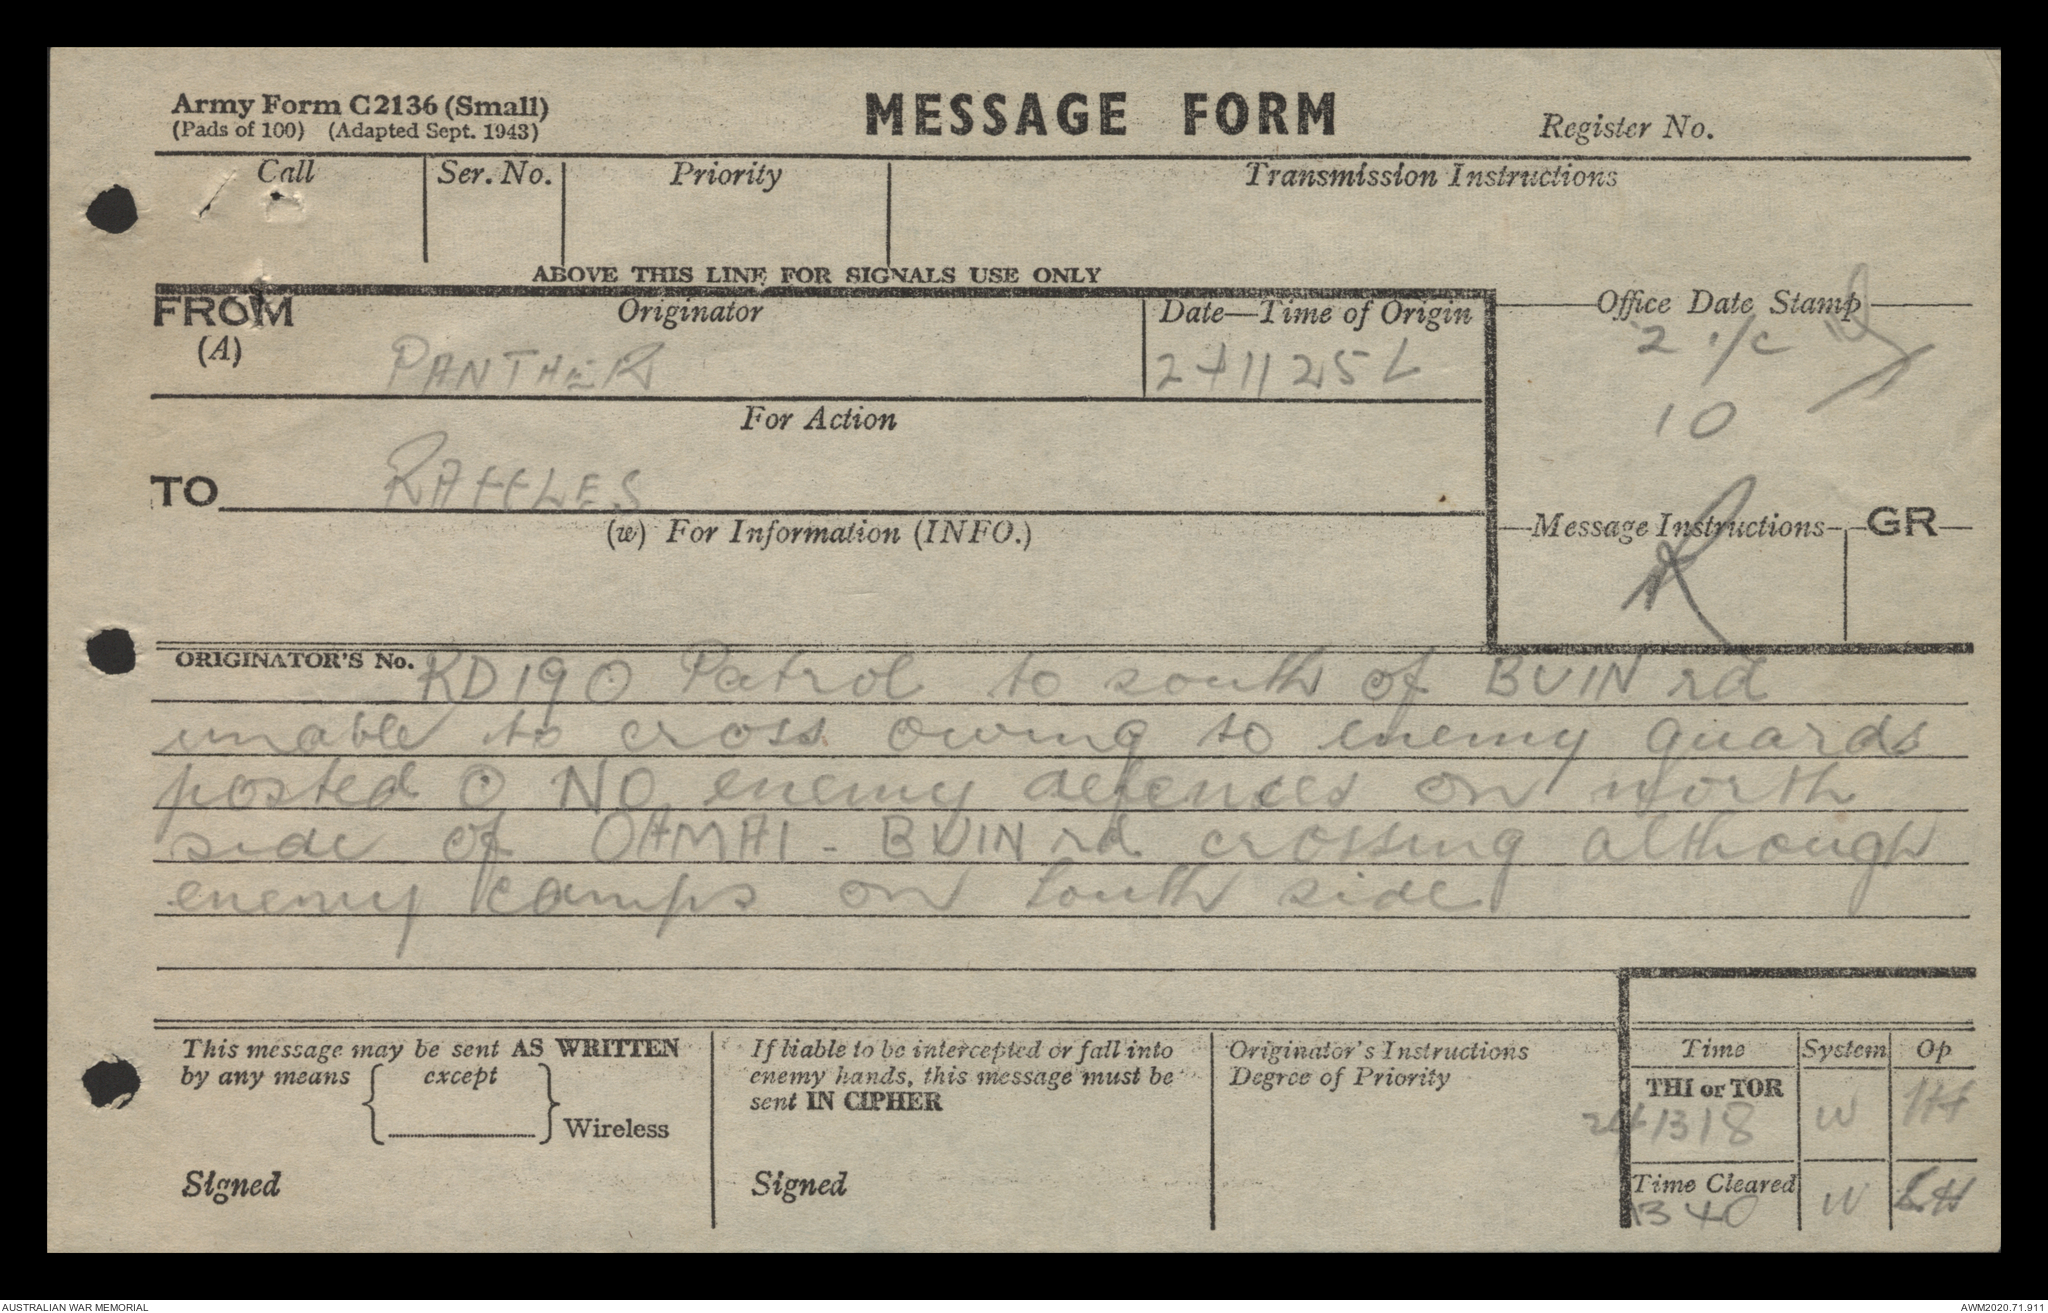 Army Form C2136 (Small)
(Pads of 100) (Adapted Sept. 1943)
MESSAGE FORM
Register No.
Call
Ser. No.
Priority
Transmission Instructions
ABOVE THIS LINE FOR SIGNALS USE ONLY
FROM
(A)
Originator
PANTHER
Date—Time of Origin
241125L
Office Date Stamp
2 i/c
10
For Action
TO
RAFFLES
(w) For Information (INFO.)
Message Instructions
GR
ORIGINATOR'S No. KD190 Patrol to south of BUIN rd
unable to cross owing to enemy guards
posted O NO enemy defences on north
side of OAMAI - BUIN rd crossing although
enemy camps on South side
This message may be sent AS WRITTEN
by any means except
Wireless
Signed
If liable to be intercepted or fall into
enemy hands, this message must be
sent IN CIPHER
Signed
Originator's Instructions
Degree of Priority
Time System Op
THI or TOR
241318 W
Time Cleared
1340 W LH
AUSTRALIAN WAR MEMORIAL
AWM2020.71.911